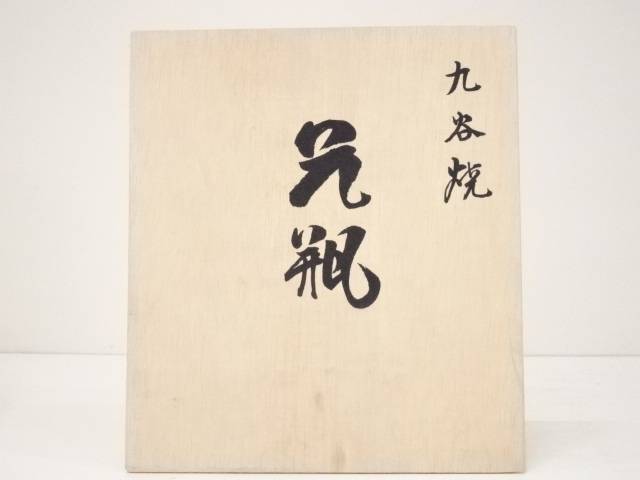 九谷焼
花瓶